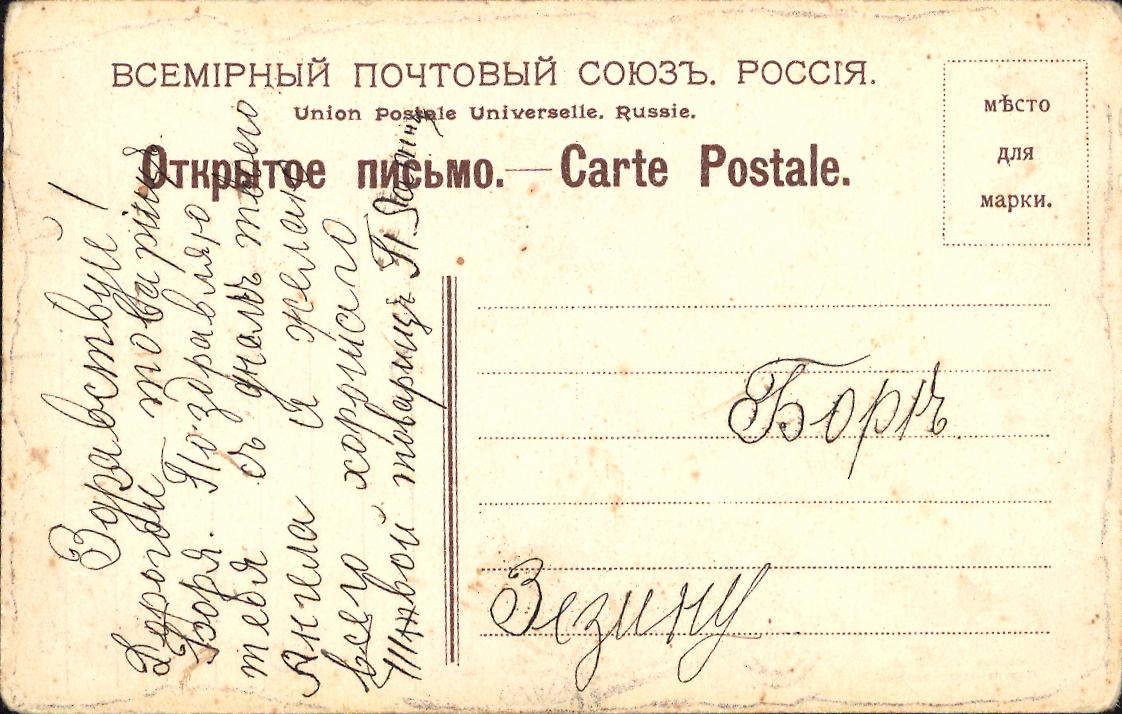 ВСЕМІРНЫЙ ПОЧТОВЫЙ СОЮЗЪ. РОССІЯ.
Union Postale Universelle. Russie.
Открытое письмо.—Carte Postale.
мѣсто
для
марки.
Здравствуй!
Дорогой товарищ
Боря. Поздравляю
тебя съ днемъ твоего
Ангела и желаю
всего хорошаго
твой товарищъ П
Борѣ
Зезину